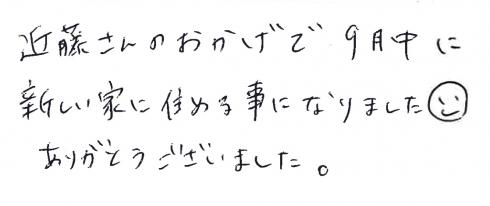 近藤さんのおかげで9月中に
新しい家に住める事になりました☺
ありがとうございました。